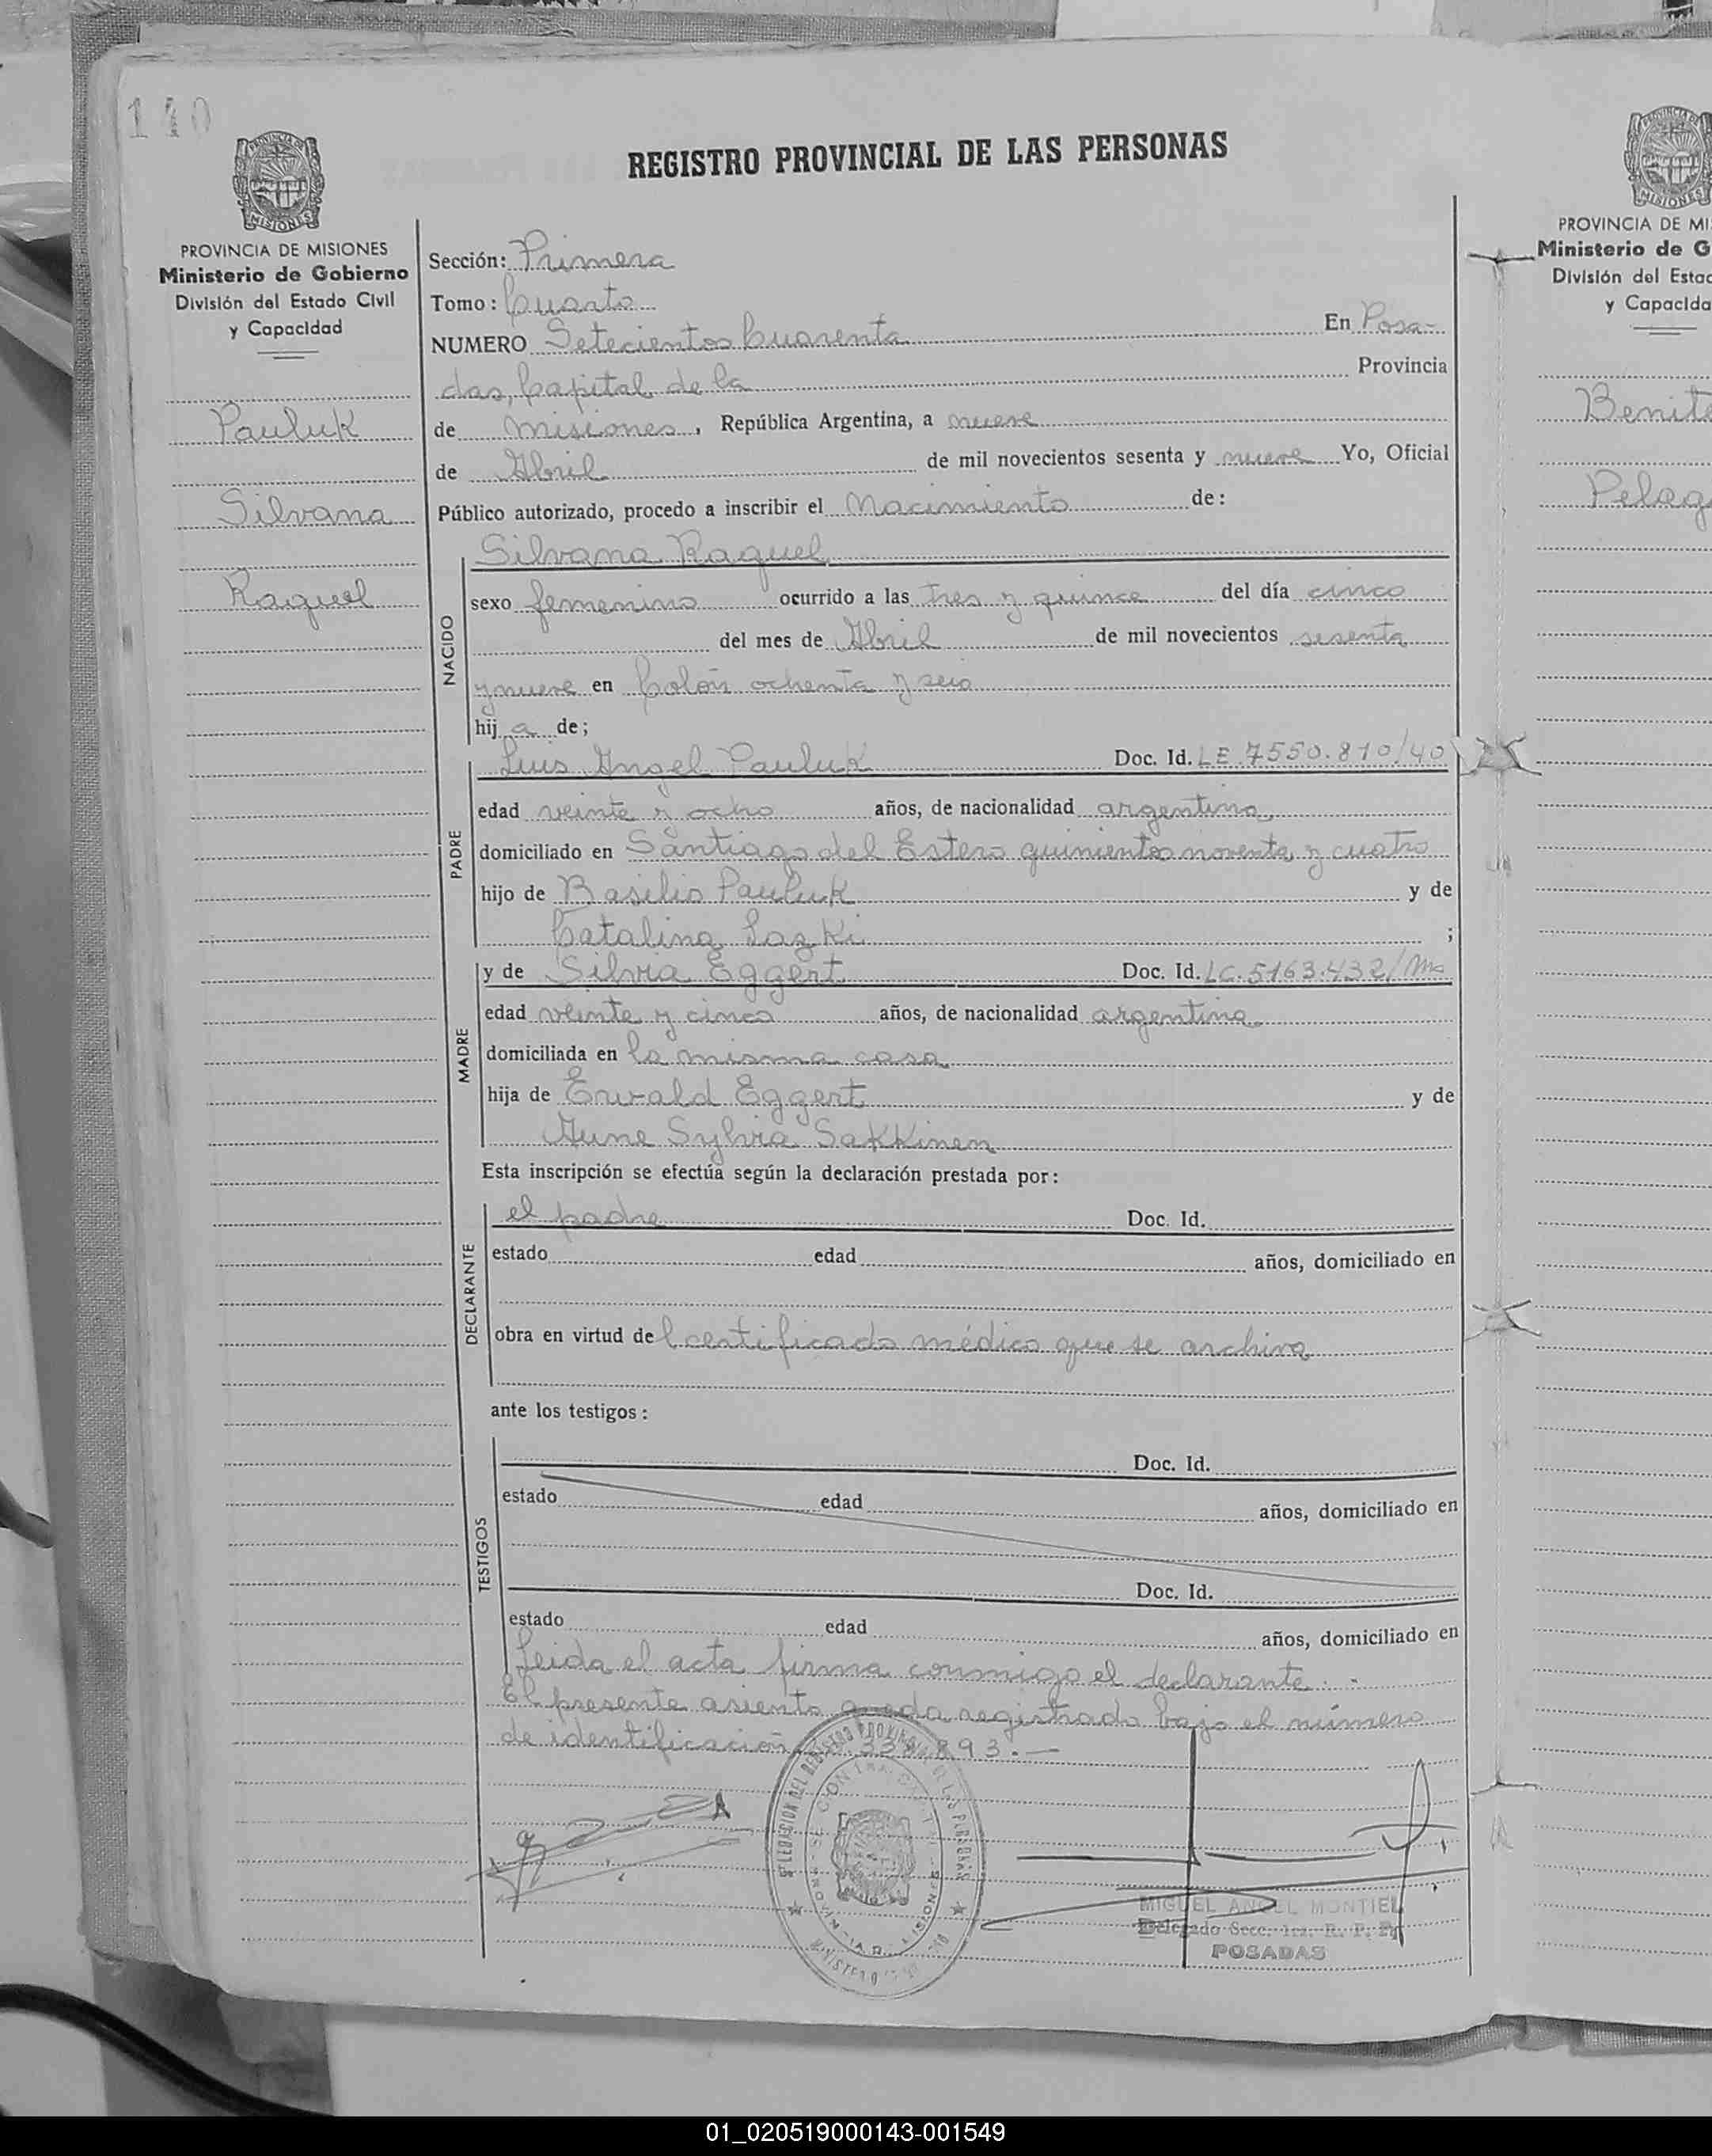 140
REGISTRO PROVINCIAL DE LAS PERSONAS
PROVINCIA DE MISIONES
Ministerio de Gobierno
División del Estado Civil
y Capacidad
Pauluk
Silvana
Raquel
Sección: Primera
Tomo: Cuarto
NUMERO Setecientos Cuarenta En Posa-
das, Capital de la Provincia
de Misiones, República Argentina, a nueve
de Abril de mil novecientos sesenta y nueve Yo, Oficial
Público autorizado, procedo a inscribir el Nacimiento de:
NACIDO
Silvana Raquel
sexo femenino ocurrido a las tres y quince del día cinco
del mes de Abril de mil novecientos sesenta
y nueve en Colón ochenta y seis
hij a de;
PADRE
Luis Angel Pauluk Doc. Id. LE 7550.810/40
edad veinte y ocho años, de nacionalidad argentina
domiciliado en Santiago del Estero quinientos noventa y cuatro
hijo de Basilio Pauluk y de
Catalina Lazki ;
MADRE
y de Silvia Eggert Doc. Id. LC. 5163.432/Ms
edad veinte y cinco años, de nacionalidad argentina
domiciliada en la misma casa
hija de Ewald Eggert y de
Aune Sylvia Sakkinen
Esta inscripción se efectúa según la declaración prestada por:
DECLARANTE
el padre Doc. Id.
estado edad años, domiciliado en
obra en virtud de l certificado médico que se archiva
ante los testigos:
TESTIGOS
Doc. Id.
estado edad años, domiciliado en
Doc. Id.
estado edad años, domiciliado en
Leida el acta firma conmigo el declarante. -
El presente asiento queda registrado bajo el número
de identificación 893.—
DELEGACION DEL REGISTRO PROVINCIAL DE LAS PERSONAS
MIGUEL ANGEL MONTIEL
Delegado Secc. 1ra. R. P. P.
POSADAS
PROVINCIA DE MI
Ministerio de G
División del Estad
y Capacida
Benite
Pelag
01_020519000143-001549